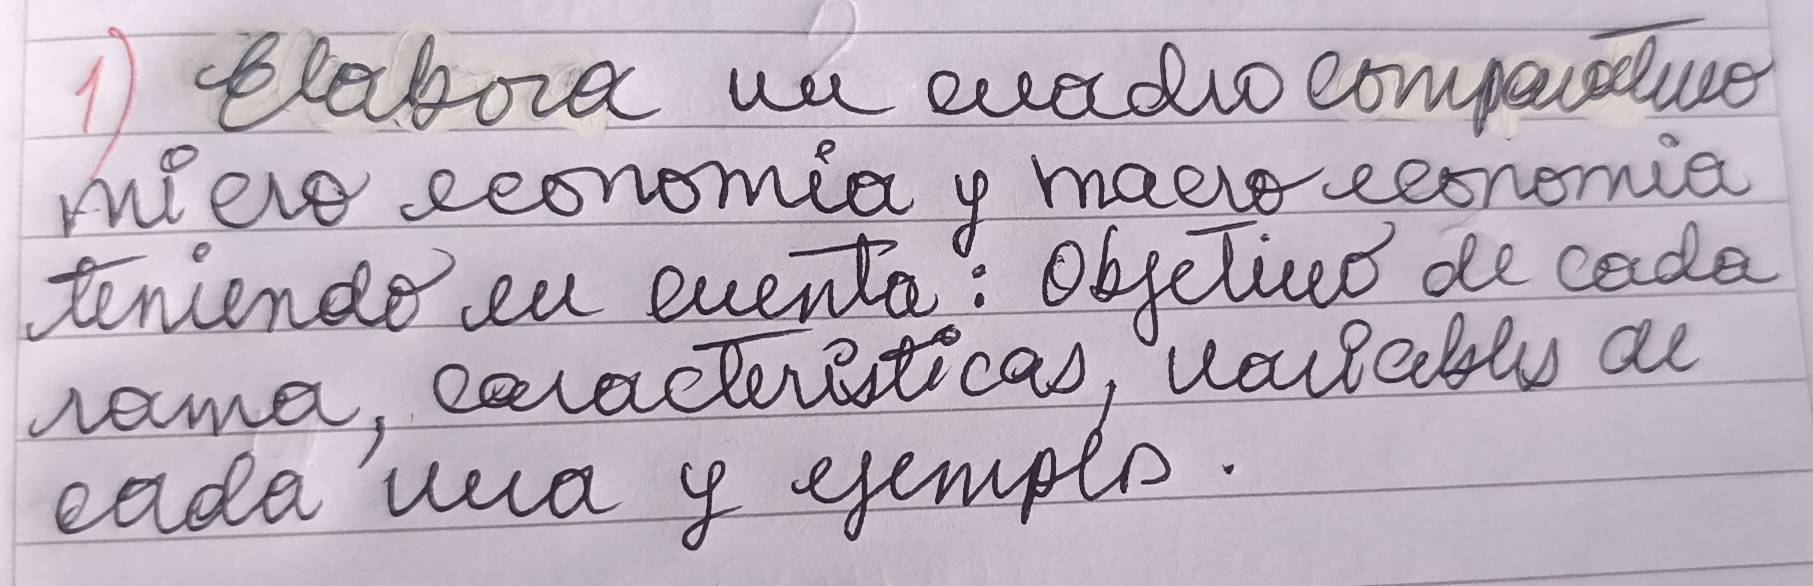 1) Elabora un cuadro comparativo
micro economía y macro economia
teniendo en cuenta: Objetivo de cada
rama, características, variables de
cada una y ejemplo.